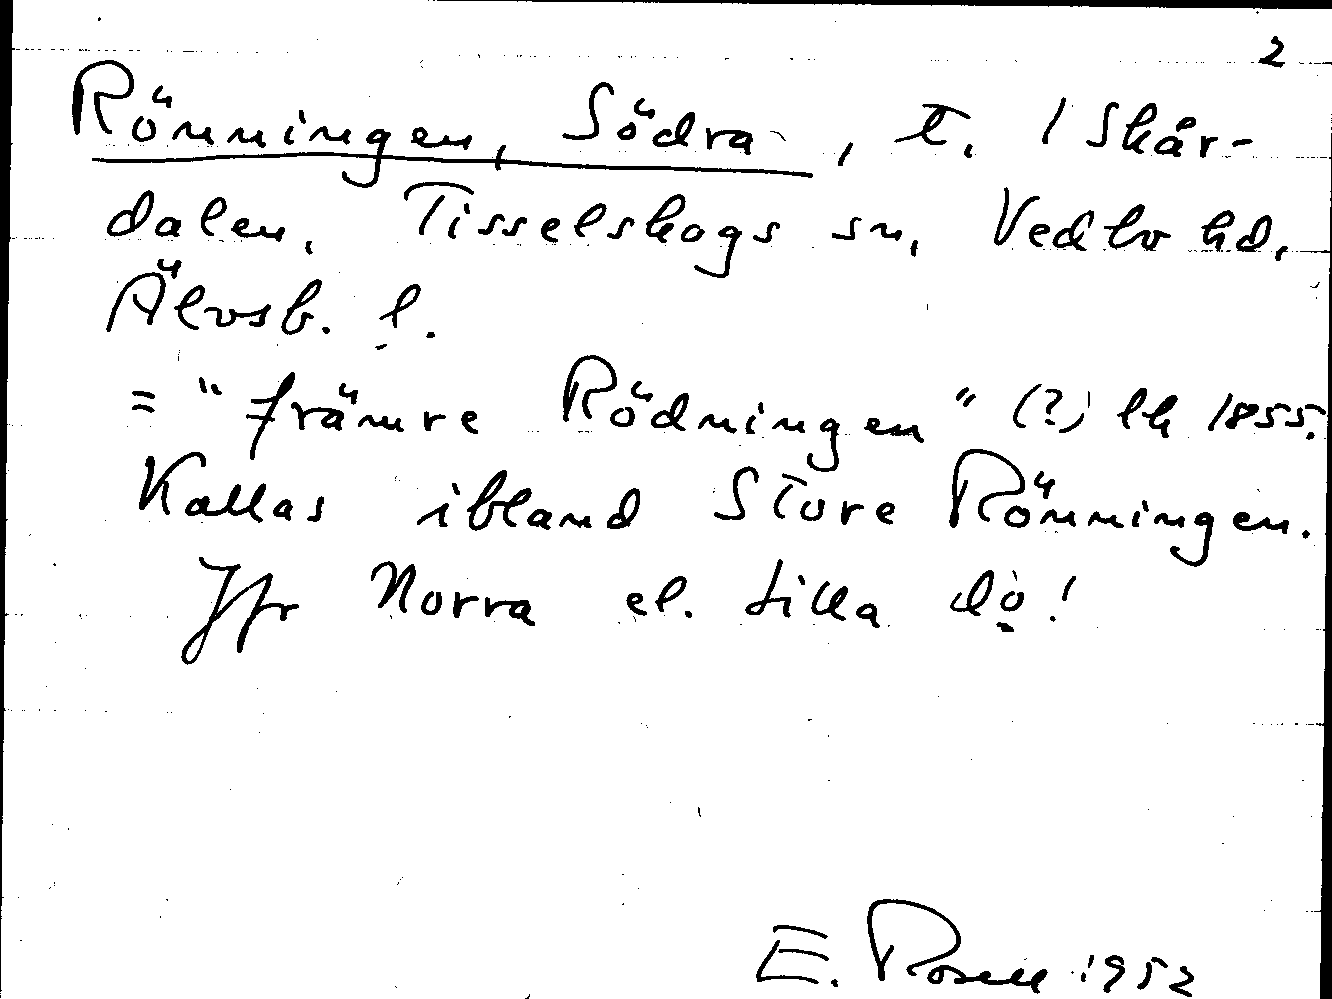 2
Rönningen, Södra, t. 1 Skår-
dalen, Tisselskogs sn, Vedbo hd,
Älvsb. l.
= "främre Rödningen" (?) lk 1855.
Kallas ibland Store Rönningen.
Jfr Norra el. Lilla do!
E. Rosell 1952